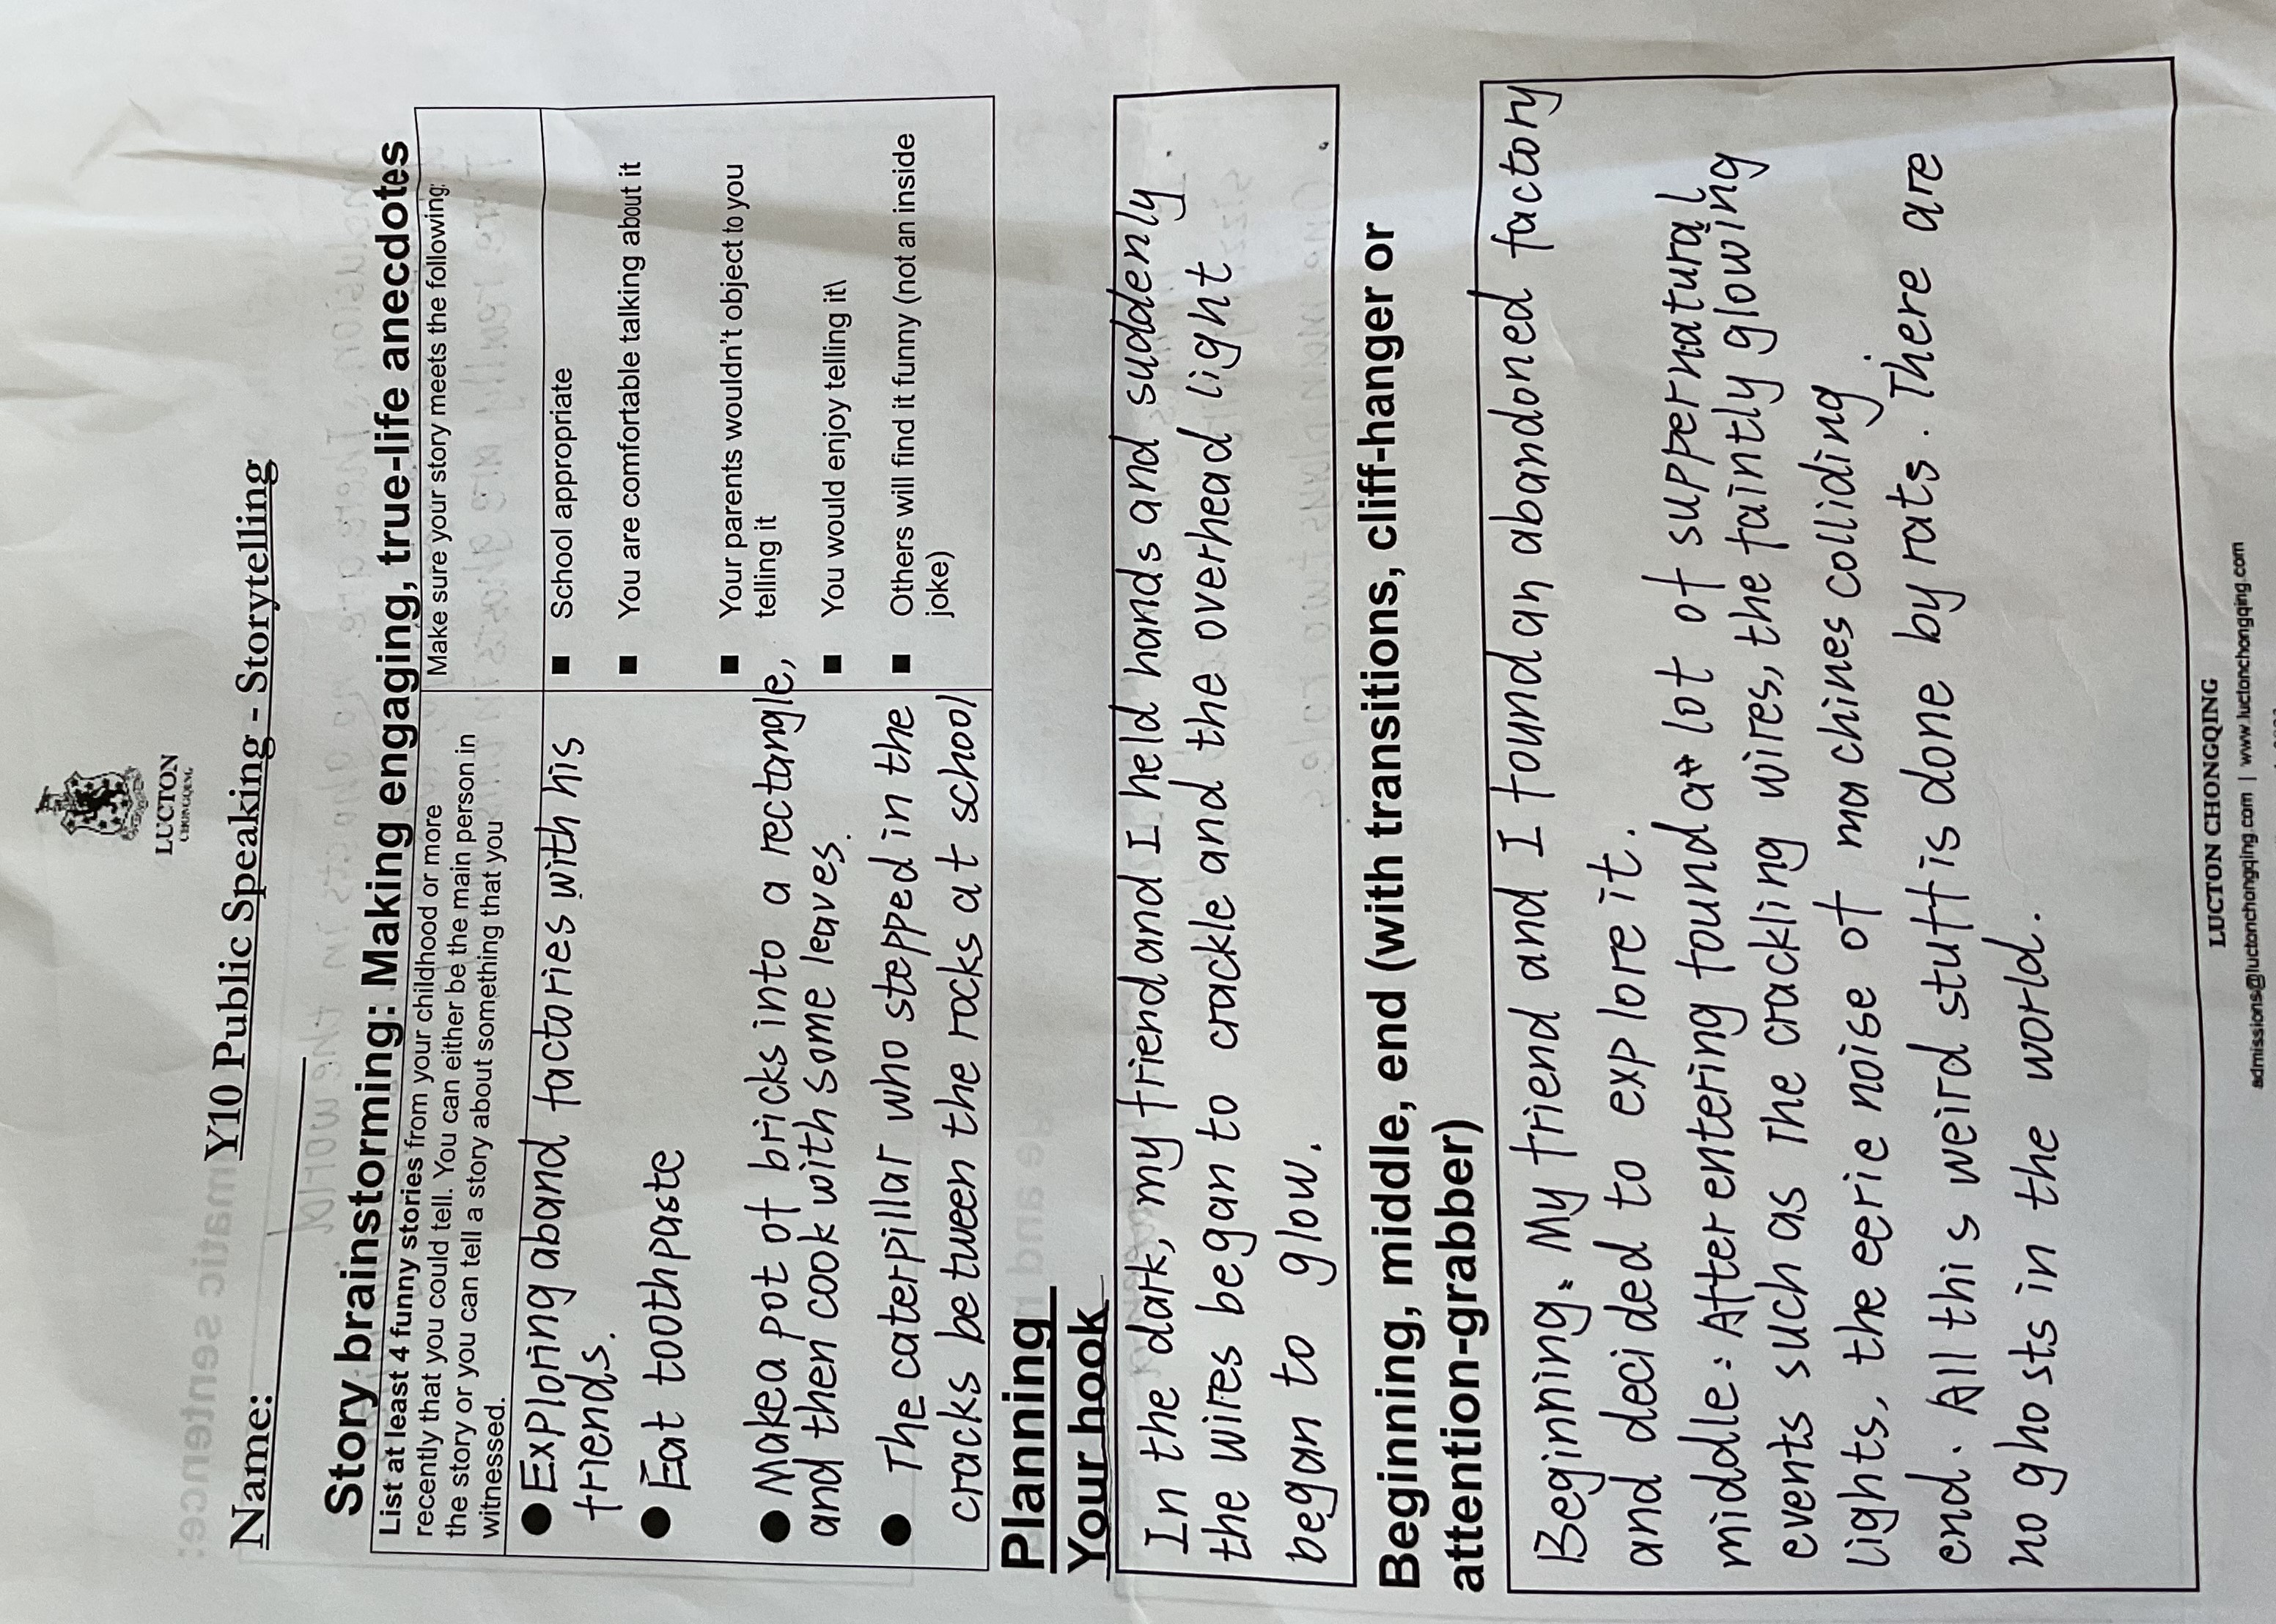 LUCTON
CHONGQING
Y10 Public Speaking - Storytelling
Name:
Story brainstorming: Making engaging, true-life anecdotes
List at least 4 funny stories from your childhood or more
recently that you could tell. You can either be the main person in
the story or you can tell a story about something that you
witnessed.
Make sure your story meets the following:
● Exploring aband factories with his
friends.
● Eat toothpaste
● Make a pot of bricks into a rectangle,
and then cook with some leaves.
● The caterpillar who stepped in the
cracks between the rocks at school
■ School appropriate
■ You are comfortable talking about it
■ Your parents wouldn't object to you
telling it
■ You would enjoy telling it\
■ Others will find it funny (not an inside
joke)
Planning
Your hook
In the dark, my friend and I held hands and suddenly
the wires began to crackle and the overhead light
began to glow.
Beginning, middle, end (with transitions, cliff-hanger or
attention-grabber)
Beginning: My friend and I found an abandoned factory
and decided to explore it.
middle: After entering found a lot of suppernatural
events such as The crackling wires, the faintly glowing
lights, the eerie noise of machines colliding
end. All this weird stuff is done by rats. There are
no ghosts in the world.
LUCTON CHONGQING
admissions@luctonchongqing.com | www.luctonchongqing.com